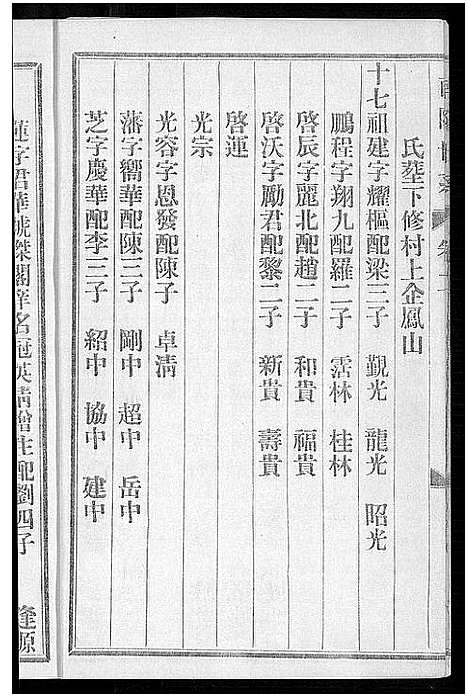 氏塟下修村上企鳳山
十七祖建字耀樞配梁三子 覲光 龍光 昭光
鵬程字翔九配羅二子 霑林 桂林
啓辰字麗北配趙二子 和貴 福貴
啓沃字勵君配黎二子 新貴 壽貴
啓運
光宗
光容字恩發配陳子 卓清
藩字嚮華配陳三子 剛中 超中 岳中
芝字慶華配李三子 紹中 協中 建中
蓮字君華號傑閣庠名冠英清增生配劉四子 逢源